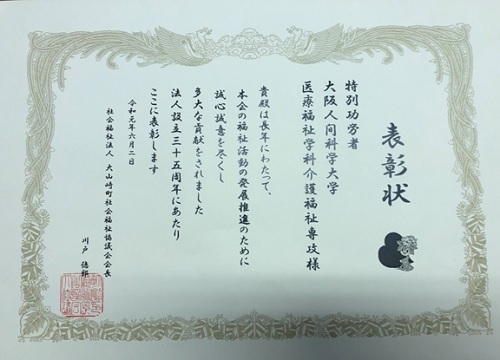 表彰状
特別功労者
大阪人间科学大学
医療福祉学科介護福祉専攻様
貴殿は長年にわたって、
本会の福祉活動の発展推進のために
誠心誠意を尽くし
多大な貢献をされました
法人設立三十五周年にあたり
ここに表彰します
令和元年六月二日
社会福祉法人 大山崎町社会福祉協議会会長
川戸 徳郎